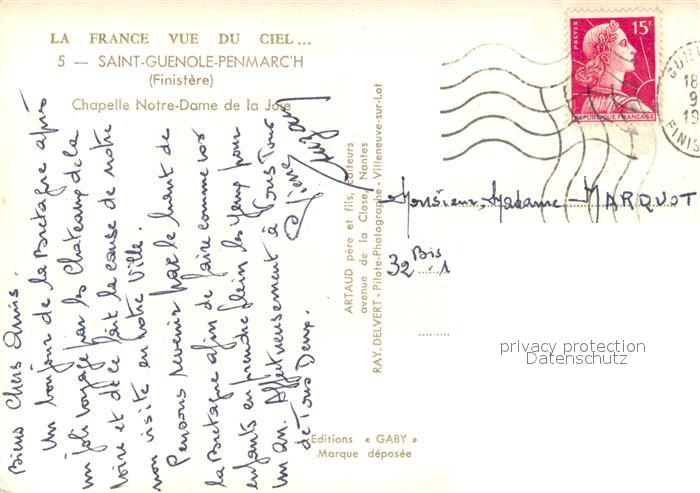 LA FRANCE VUE DU CIEL...
5 — SAINT-GUENOLE-PENMARC'H
(Finistère)
Chapelle Notre-Dame de la Joie
Biens Chers Amis.
Un bonjour de la Bretagne après
un joli voyage par les Chateaux de la
loire et de ce fait la cause de notre
non visite en votre Ville.
Pensons revenir par le haut de
la Bretagne afin de faire comme vos
enfants en prendre plein les Yeux pour
un an. Affectueusement à Vous Tous
de Tous Deux.
ARTAUD père et fils, Editeurs
avenue de la Close, Nantes
RAY. DELVERT - Pilote-Photographe - Villeneuve-sur-Lot
Editions « GABY »
Marque déposée
POSTES
15F
REPUBLIQUE FRANÇAISE
18
9
19
FINIS
Monsieur, Madame MARQUOT
32 Bis
privacy protection
Datenschutz